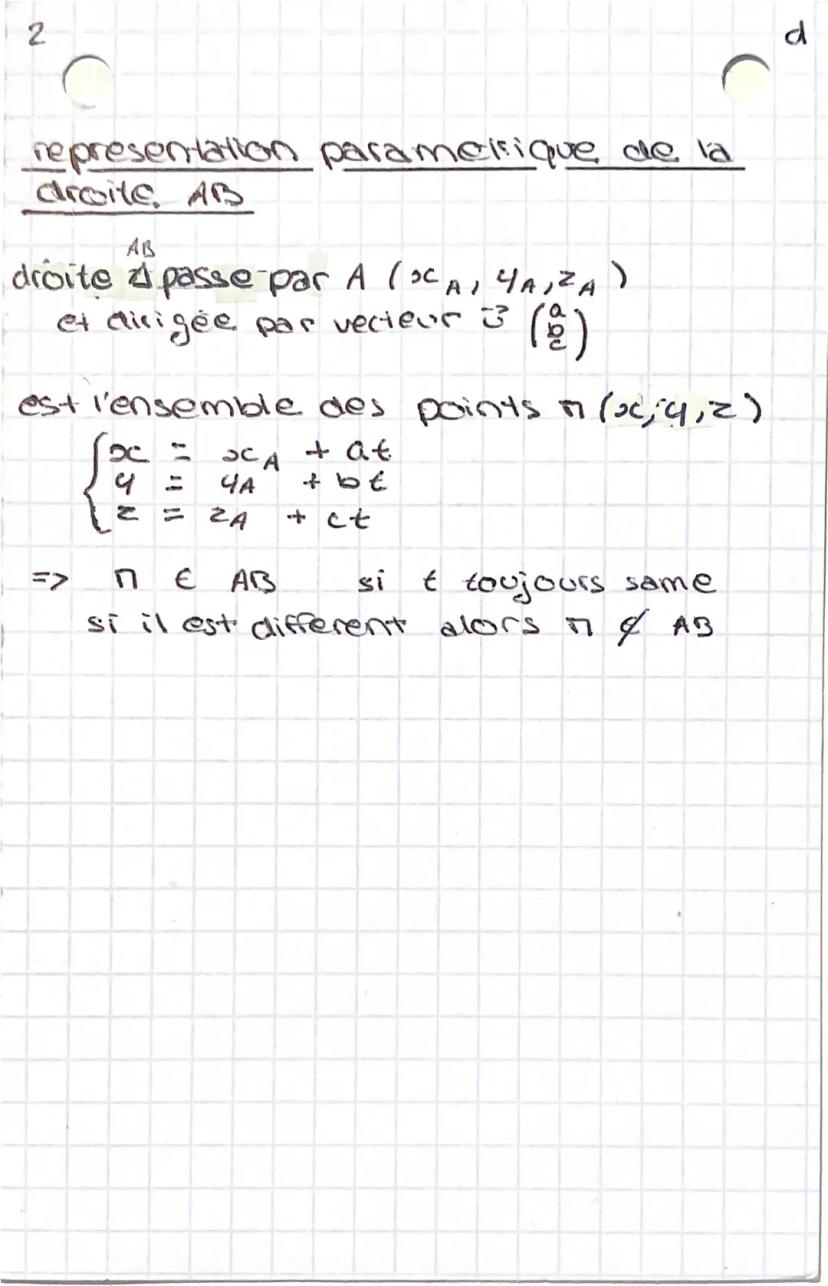 2 d
representation parametrique de la
droite AB
AB
droite Δ passe par A (x_A, y_A, z_A)
et dirigée par vecteur u⃗ (a b c)
est l'ensemble des points M (x, y, z)
{ x = x_A + at
y = y_A + bt
z = z_A + ct
=> M ∈ AB si t toujours same
si il est different alors M ∉ AB